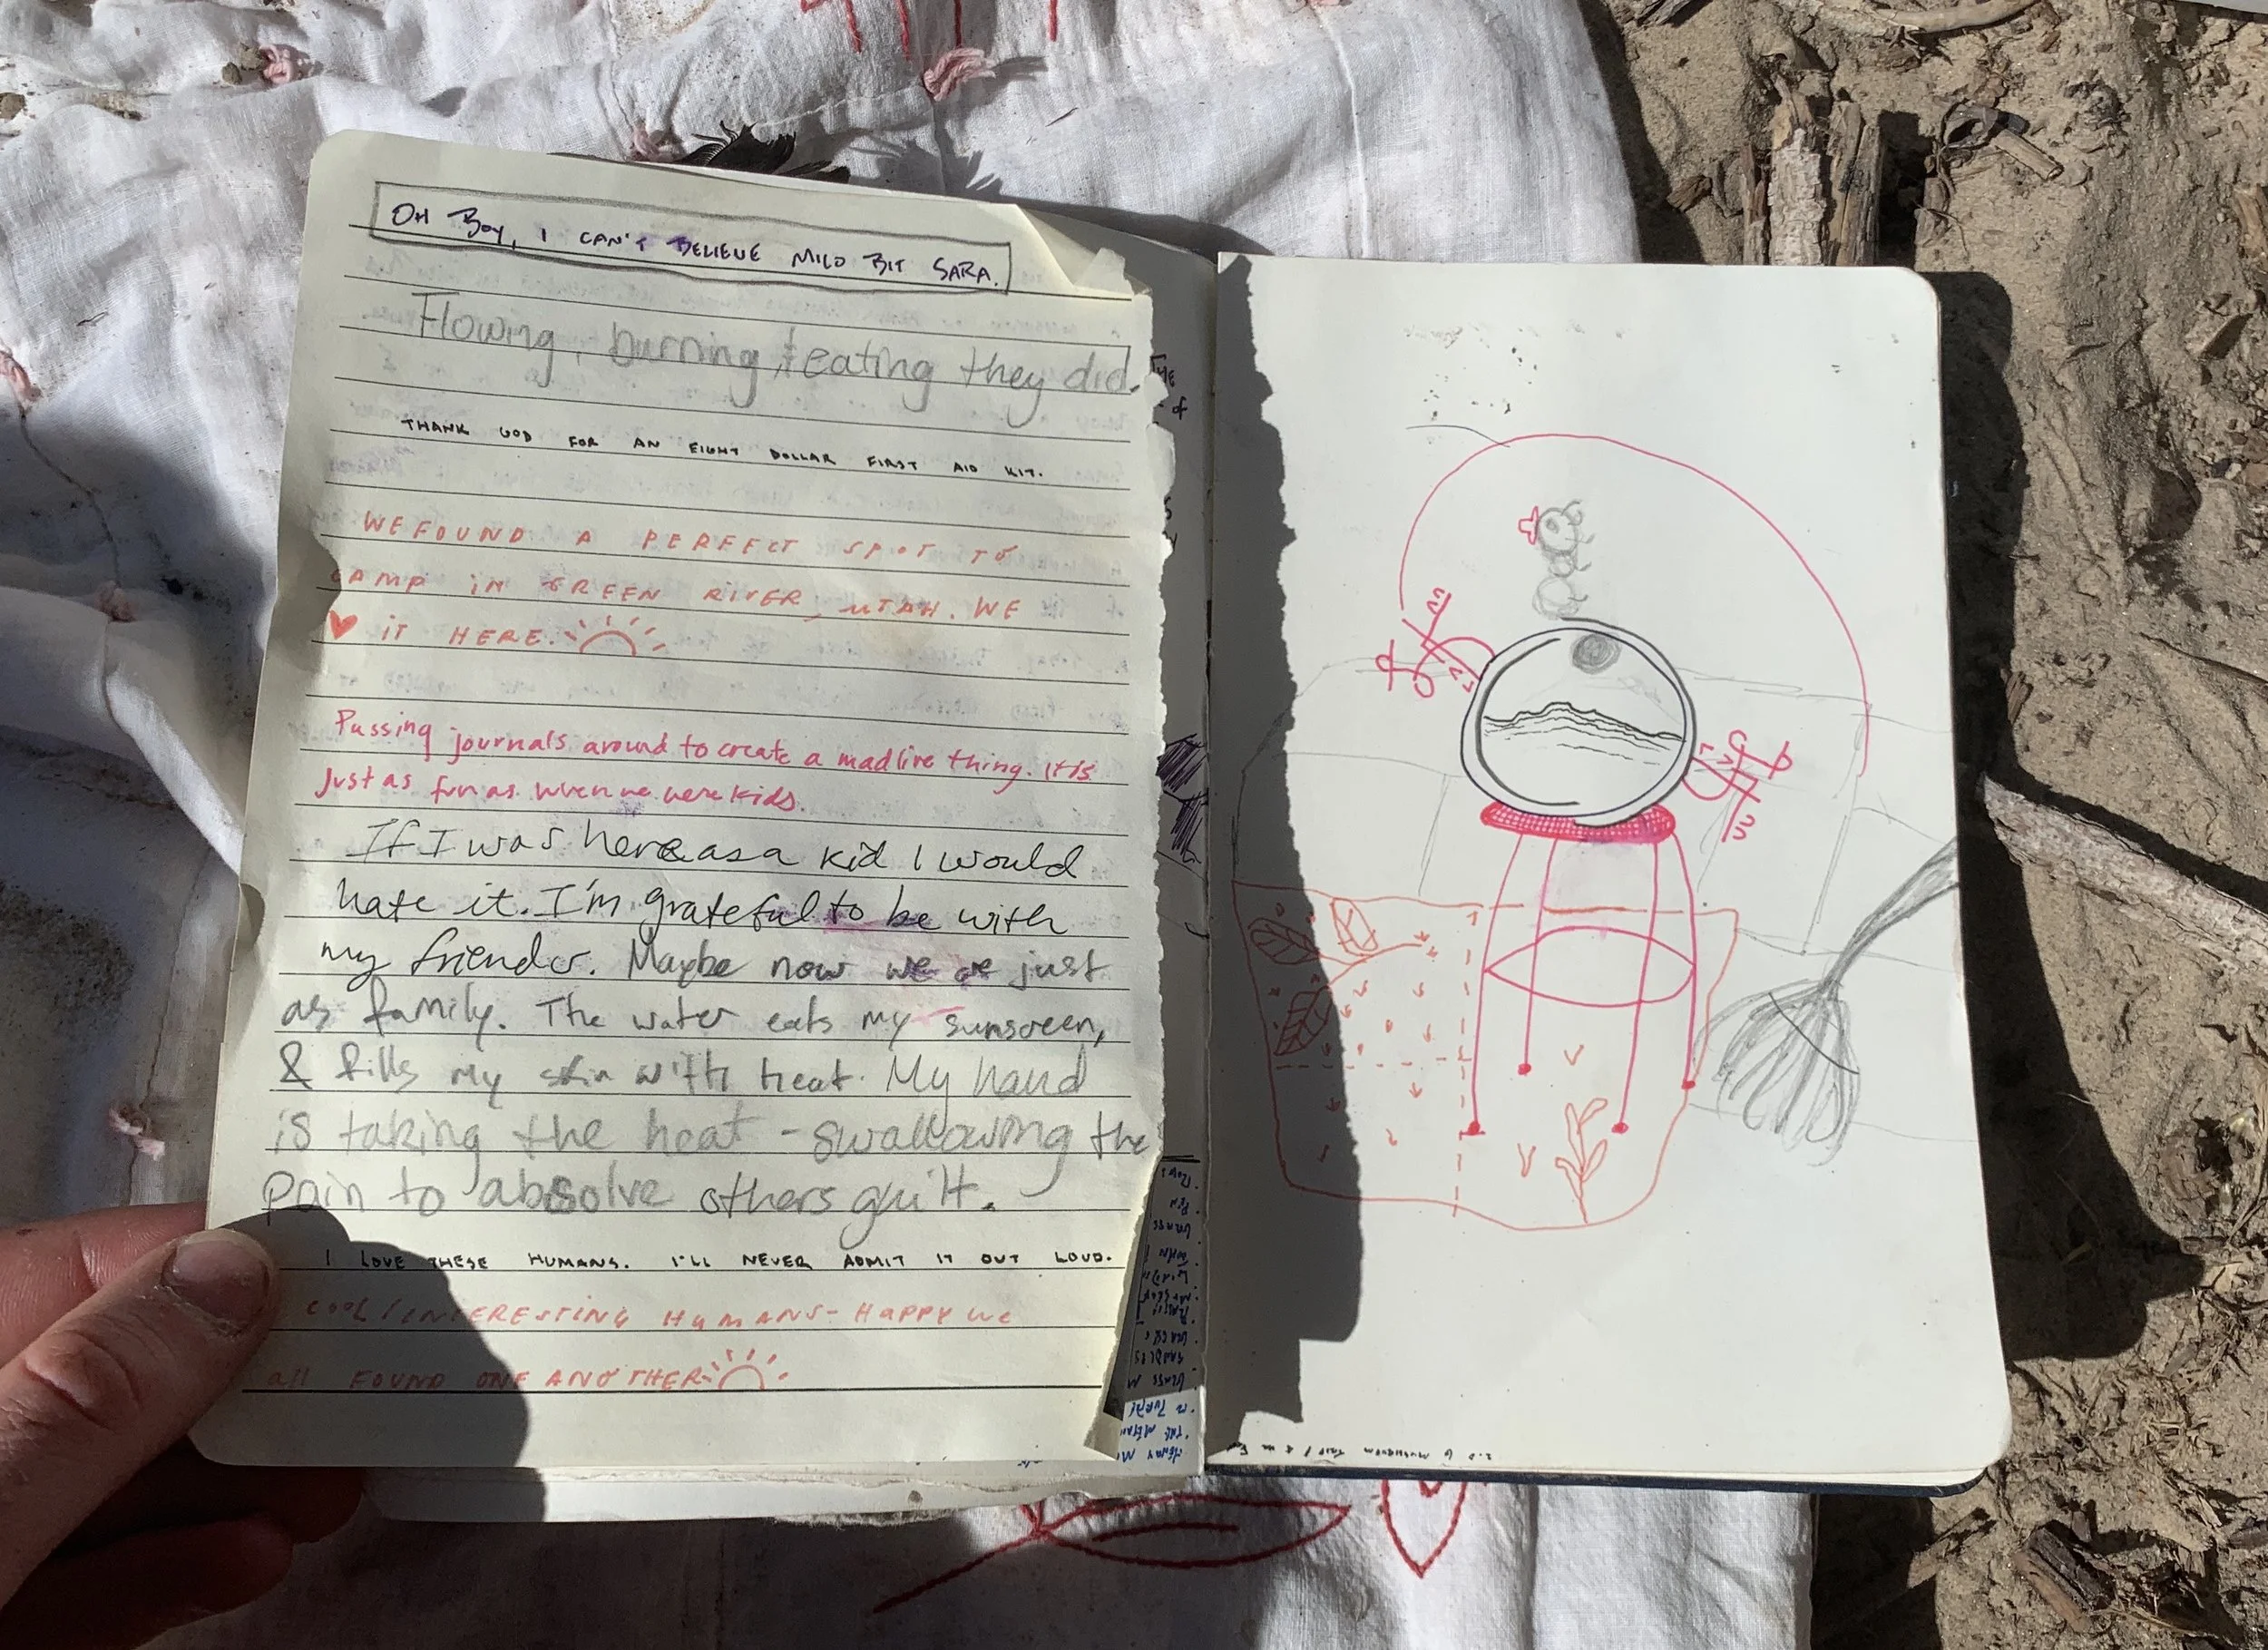 OH BOY, I CAN'T BELIEVE MILO BIT SARA.
Flowing, burning, & eating they did.
THANK GOD FOR AN EIGHT DOLLAR FIRST AID KIT.
WE FOUND A PERFECT SPOT TO
CAMP IN GREEN RIVER, UTAH. WE
♥ iT HERE.
Passing journals around to create a madlive thing. It is
just as fun as when we were kids.
If I was here as a kid I would
hate it. I'm grateful to be with
my friends. Maybe now we are just
as family. The water eats my sunscreen,
& fills my skin with heat. My hand
is taking the heat - swallowing the
pain to absolve others guilt.
I LOVE THESE HUMANS. I'LL NEVER ADMIT IT OUT LOUD.
COOL/INTERESTING HUMANS - HAPPY WE
all FOUND ONE ANOTHER
THE
of